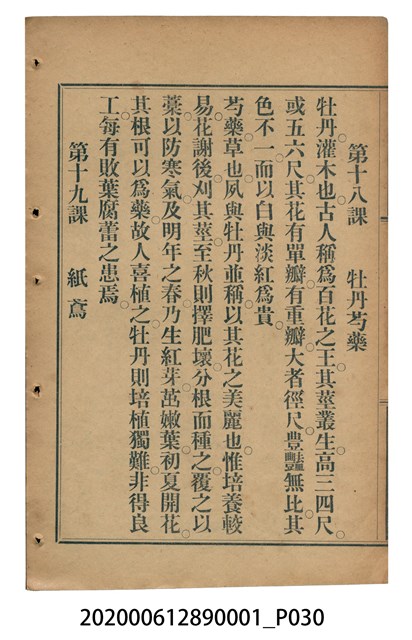 第十八課　牡丹芍藥
牡丹。灌木也。古人稱爲百花之王。其莖叢生。高三四尺。
或五六尺。其花有單瓣有重瓣。大者徑尺。豐豔無比。其
色不一。而以白與淡紅爲貴。
芍藥。草也。夙與牡丹並稱。以其花之美麗也。惟培養較
易。花謝後刈其莖。至秋則擇肥壞分根而種之。覆之以
藁。以防寒氣。及明年之春。乃生紅芽。茁嫩葉。初夏開花。
其根可以爲藥。故人喜植之。牡丹則培植獨難。非得良
工。每有敗葉腐蕾之患焉。
第十九課　紙鳶
202000612890001_P030